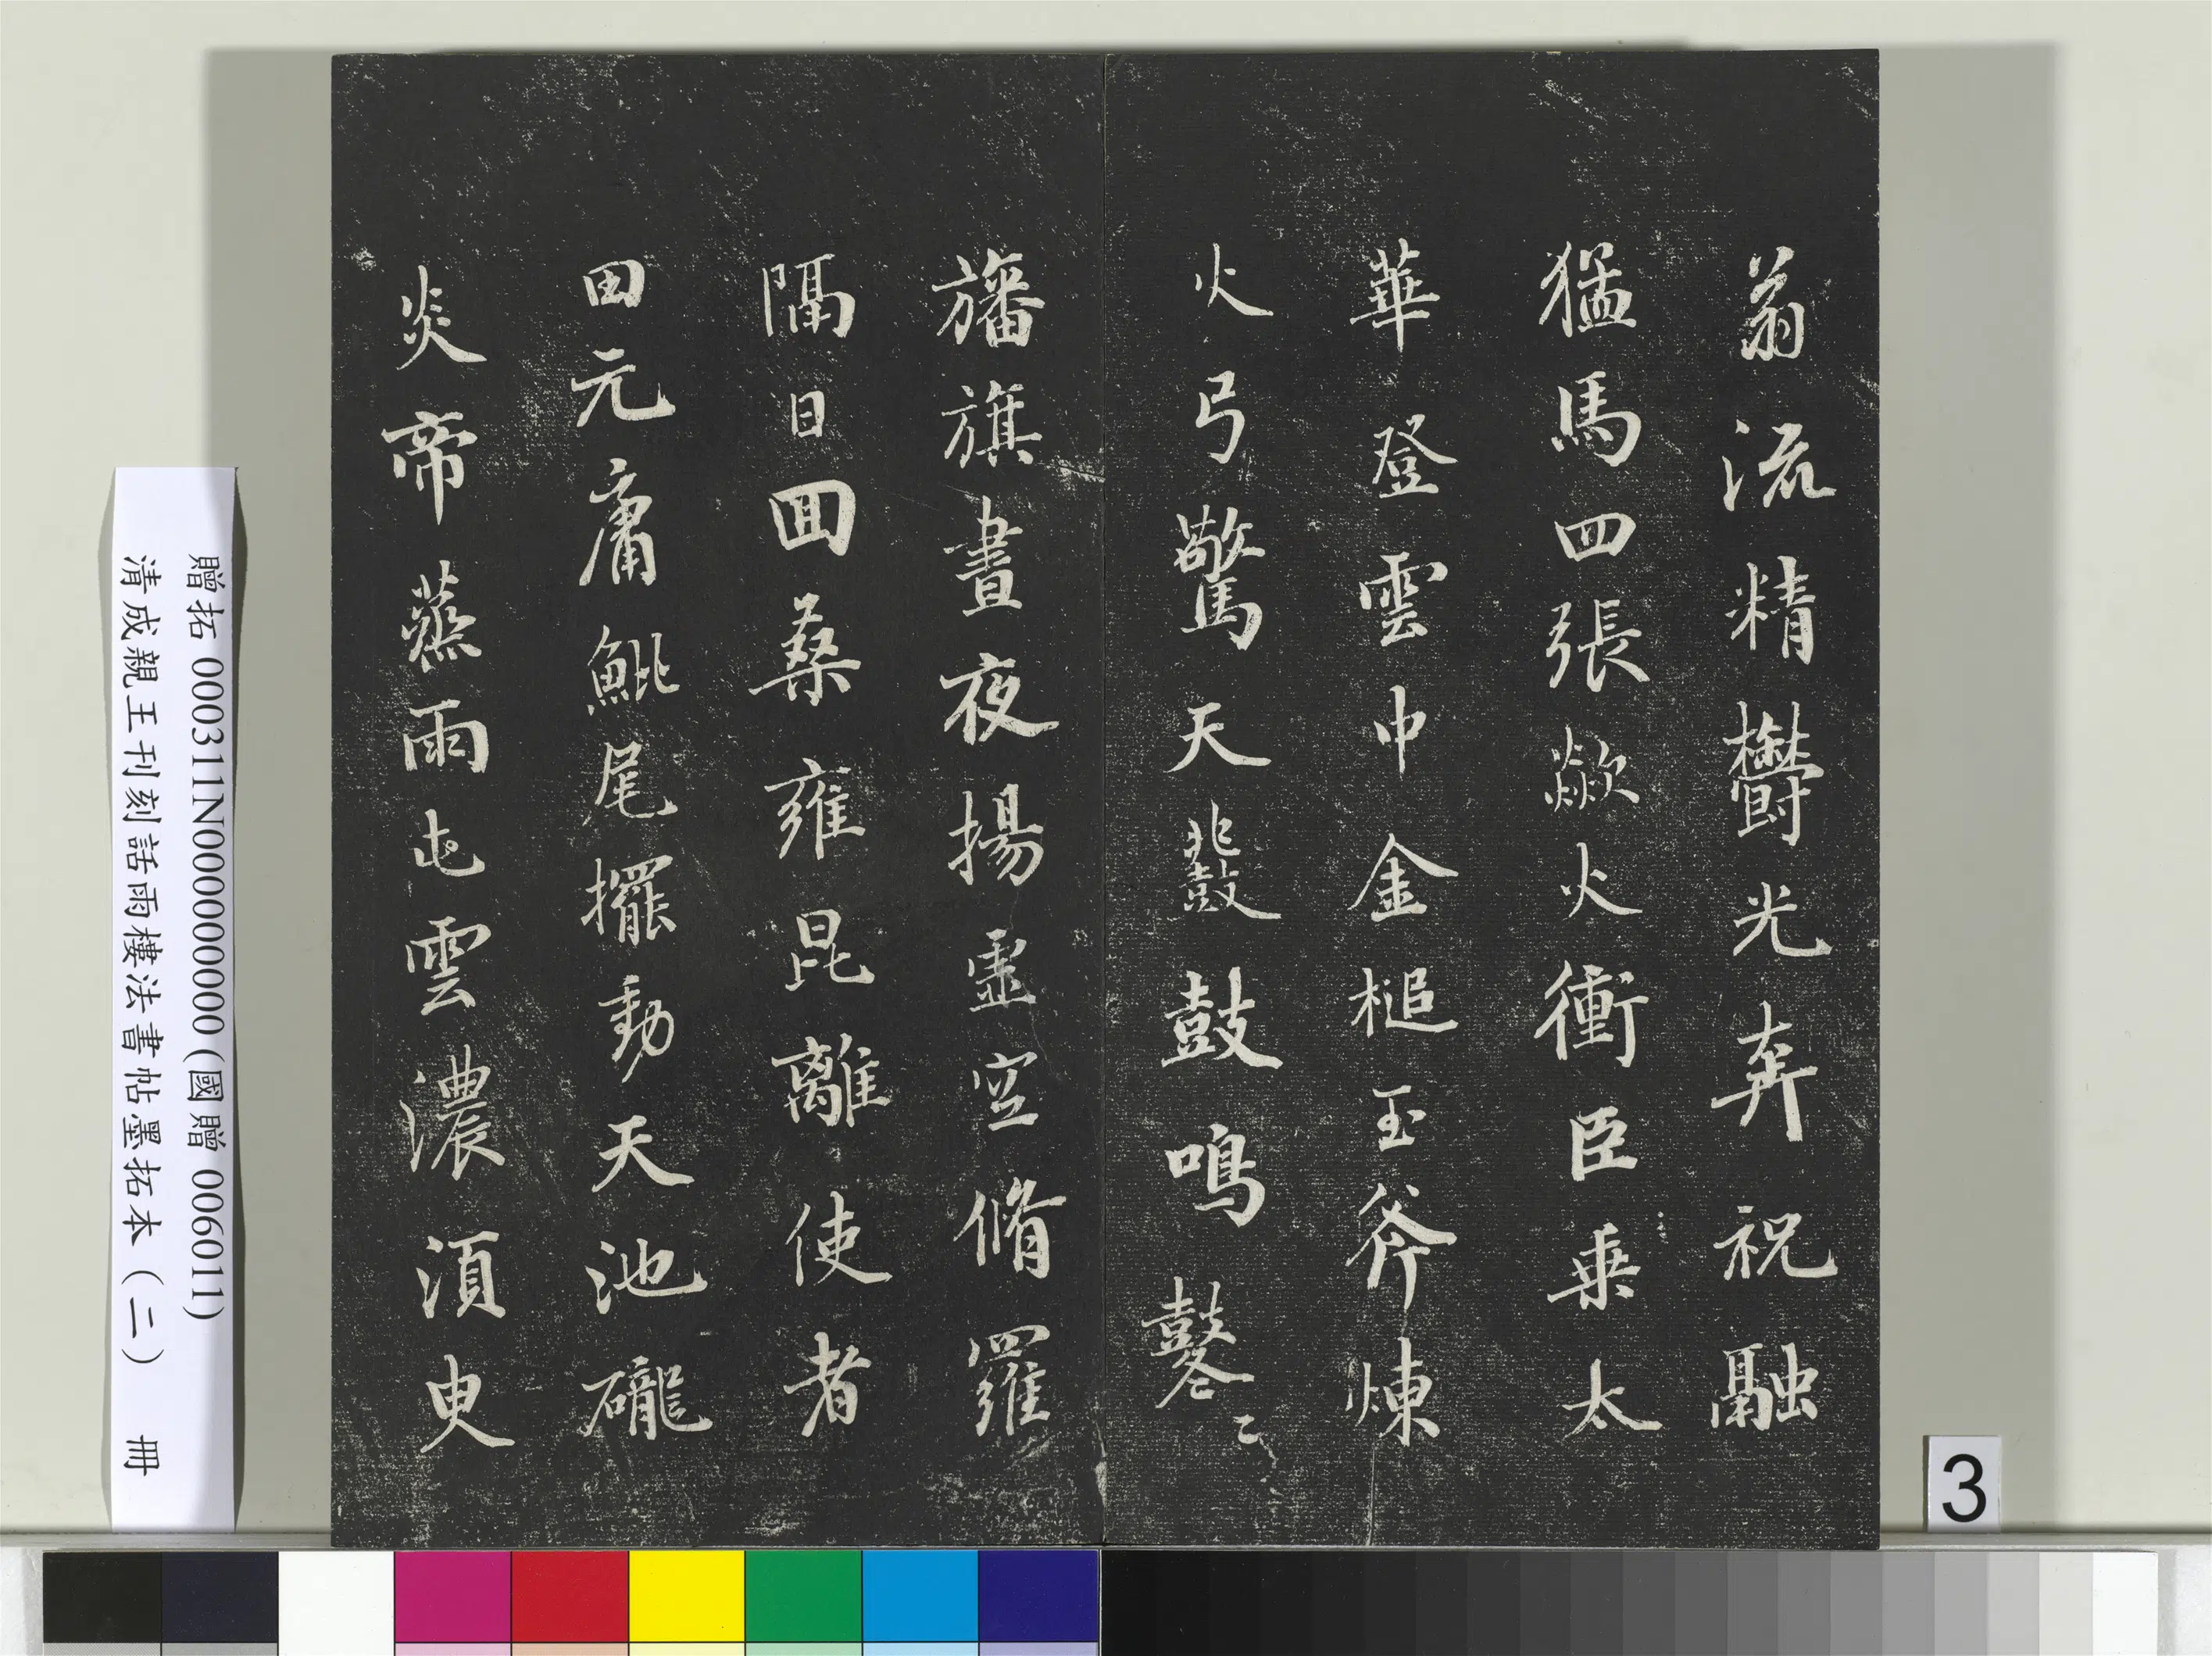 翁流精欝光奔祝融
猛馬四張歘火衝臣乗太
華登雲中金槌玉斧煉
火弓驚天鼓鳴鼛〻
旛旗晝夜揚靈空脩羅
隔日囬桒雍昆離使者
田元庸鮡尾擺動天池礲
炎帝蒸雨屯雲濃湏臾
贈拓 000311N000000000(國贈 006011)
清成親王刊刻話雨樓法書帖墨拓本(二) 冊
3